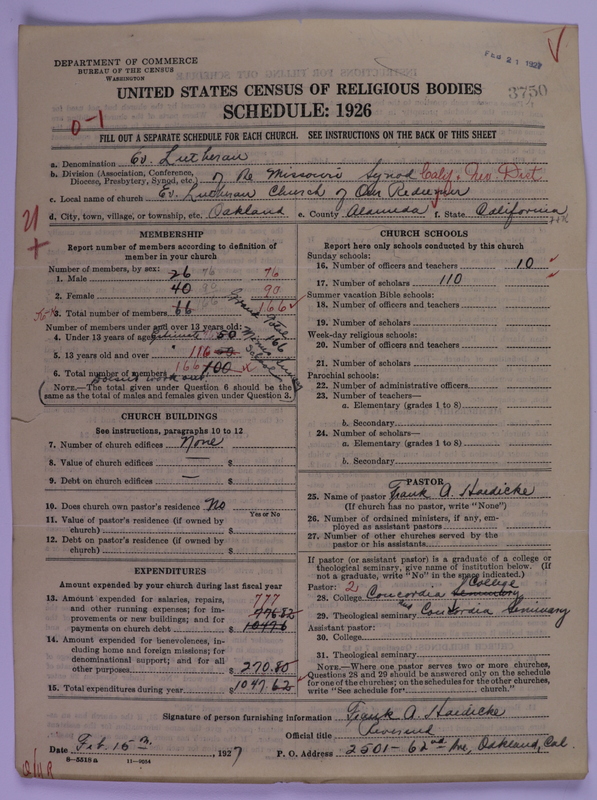 DEPARTMENT OF COMMERCE
BUREAU OF THE CENSUS
WASHINGTON
FEB 21 1927
3750
UNITED STATES CENSUS OF RELIGIOUS BODIES
SCHEDULE: 1926
0-1
FILL OUT A SEPARATE SCHEDULE FOR EACH CHURCH. SEE INSTRUCTIONS ON THE BACK OF THIS SHEET
a. Denomination Ev. Lutheran
b. Division (Association, Conference, Diocese, Presbytery, Synod, etc.) of the Missouri Synod Calif. & Nev. Dist
c. Local name of church Ev. Lutheran Church of Our Redeemer
d. City, town, village, or township, etc. Oakland e. County Alameda f. State California
MEMBERSHIP
Report number of members according to definition of
member in your church
Number of members, by sex:
1. Male 26 76 76
2. Female 40 90 90
3. Total number of members 66 166 166
Number of members under and over 13 years old:
4. Under 13 years of age Estimate 50
5. 13 years old and over " 116
6. Total number of members 166 100
Doesn't work out
(NOTE.—The total given under Question 6 should be the
same as the total of males and females given under Question 3.)
CHURCH BUILDINGS
See instructions, paragraphs 10 to 12
7. Number of church edifices None
8. Value of church edifices — $
9. Debt on church edifices — $
10. Does church own pastor's residence No
Yes or No
11. Value of pastor's residence (if owned by
church) $
12. Debt on pastor's residence (if owned by
church) $
EXPENDITURES
Amount expended by your church during last fiscal year
13. Amount expended for salaries, repairs, 777
and other running expenses; for im- 776.82
provements or new buildings; and for
payments on church debt $ 10476
14. Amount expended for benevolences, in-
cluding home and foreign missions; for
denominational support; and for all
other purposes $ 270.80
15. Total expenditures during year $ 1047.62
CHURCH SCHOOLS
Report here only schools conducted by this church
Sunday schools:
16. Number of officers and teachers 10
17. Number of scholars 110
Summer vacation Bible schools:
18. Number of officers and teachers
19. Number of scholars
Week-day religious schools:
20. Number of officers and teachers
21. Number of scholars
Parochial schools:
22. Number of administrative officers
23. Number of teachers—
a. Elementary (grades 1 to 8)
b. Secondary
24. Number of scholars—
a. Elementary (grades 1 to 8)
b. Secondary
PASTOR
25. Name of pastor Frank A. Haedicke
(If church has no pastor, write "None")
26. Number of ordained ministers, if any, em-
ployed as assistant pastors
27. Number of other churches served by the
pastor or his assistants
If pastor (or assistant pastor) is a graduate of a college or
theological seminary, give name of institution below. (If
not a graduate, write "No" in the space indicated.)
Pastor: 2 College
28. College Concordia Seminary
29. Theological seminary Concordia Seminary
Assistant pastor:
30. College
31. Theological seminary
NOTE.—Where one pastor serves two or more churches,
Questions 28 and 29 should be answered only on the schedule
for one of the churches; on the schedules for the other churches,
write "See schedule for church."
Signature of person furnishing information Frank A. Haedicke
Official title Reverend
Date Feb. 15th 1927 P. O. Address 2501-62nd Ave, Oakland, Cal.
8-5518 a 11-9014